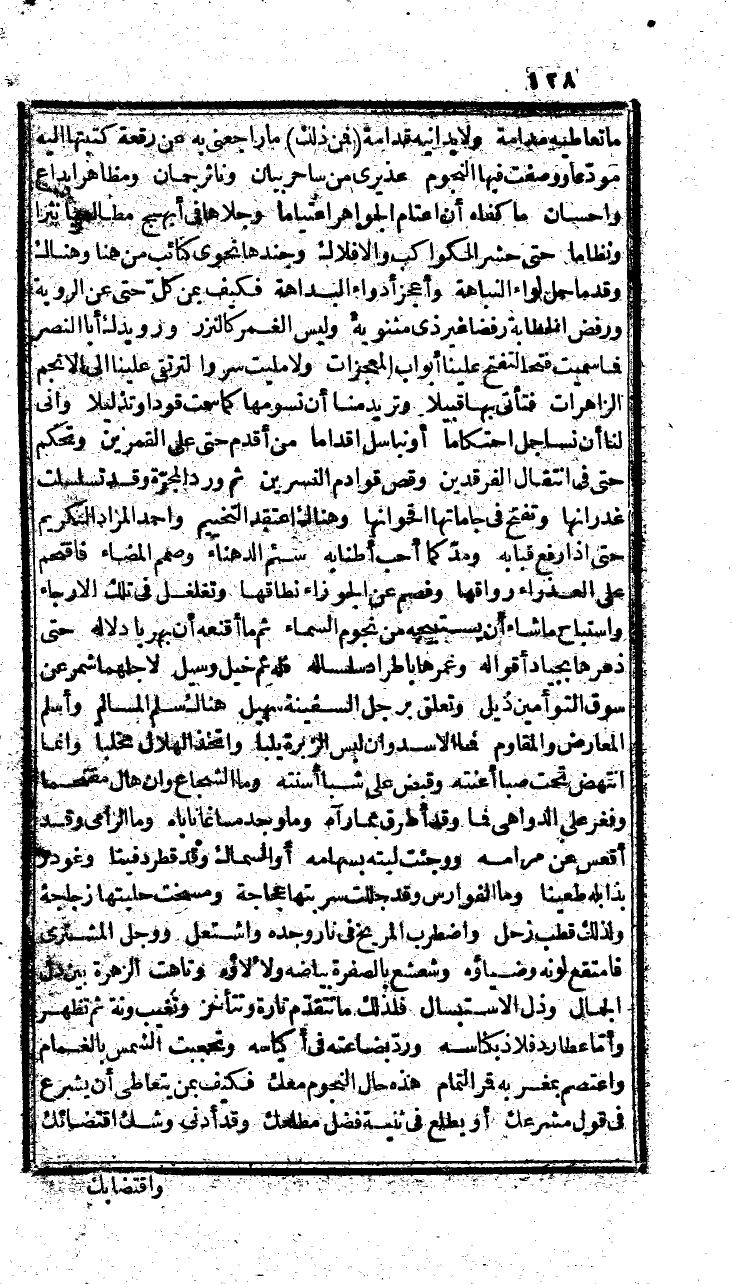 ١٢٨
ما تعاطيه مدامة ولا يدانيه قدامة (فمن ذلك) ما راجعني به من رقعة كتبتها اليه
مودعا ووصفت فيها النجوم عذيرى من ساحر بيان وناثر جمان ومظاهر ابداع
واحسان ما كفاه أن اعتام الجواهر اعتياما وجلاها فى أبهج مطالعها نثرا
ونظاما حتى حشر الكواكب والافلاك وجندها نحوى كتائب من هنا وهنالك
وقدما حمل لواء النباهة وأعجز أدواء البداهة فكيف بمن كل حتى عن الروية
ورفض الخطابة رفضا غير ذى مثنوية وليس الغمر كالنزر ورويدك أبا النصر
فما سميت فتحا لتفتح علينا أبواب المعجزات ولا مليت سروا لترتقى علينا الى الانجم
الزاهرات فتأتى بها قبيلا وتريد منا أن نسومها كما سمت قودا وتذليلا وأنى
لنا أن نساجل احتكاما أو نباسل اقداما من أقدم حتى على القمرين وتحكم
حتى فى انتقال الفرقدين وقص قوادم النسرين ثم ورد المجرة وقد تسلسلت
غدرانها وتفتح فى جاماتها اقحوانها وهنالك اعتقد التخييم واحمد المراد الكريم
حتى اذا رفع قبابه ومد كما أحب أطنابه سئم الدهناء وصمم المضاء فاقتحم
على العذراء رواقها وفصم عن الجوزاء نطاقها وتغلغل فى تلك الارجاء
واستباح ما شاء أن يستبيحه من نجوم السماء ثم ما أقنعه أن بهر بادلاله حتى
ذعرها بجياد أقواله وغمرها باطراد سلساله فله ثم خيل وسيل لاجلهما شمر عن
سوق التوأمين ذيل وتعلق برجل السفينة سهيل هنالك سلم المسالم وأسلم
المعارض والمقاوم فما الاسد وان لبس الزبرة يلبا واتخذ الهلال مخلبا وانما
انتهض تحت صبا أعنته وقبض على شبا أسنته وما الشجاع وان هال مقتحما
وفغر على الدواهى فما وقد أطرق مما رآه وما وجد مساغا ناباه وما الرامى وقد
أقعس عن مرامه ووجئت لبته بسهامه أو السماك وقد قطر دفينا وغودر
بذابله طعينا وما الفوارس وقد جللت سربتها عجاجة ومسخت حليتها زجاجة
ولذلك قطب زحل واضطرب المريخ فى نار وجده واشتعل ووجل المشترى
فامتقع لونه وضياؤه وشعشع بالصفرة بياضه ولالاؤه وتاهت الزهرة بين دل
الجمال وذل الاستبسال فلذلك ما تتقدم تارة وتتأخر وتغيب ونة ثم تظهر
وأما عطارد فلاذ بكناسه ورد بضاعته فى أكياسه وتحجبت الشمس بالغمام
واعتصم بمغربه قمر التمام هذه حال النجوم معك فكيف بمن يتعاطى أن يشرع
فى قول مشرعك أو يطلع فى ثنية فضل مطلعك وقد أدنى وشك اقتضائك
واقتضابك